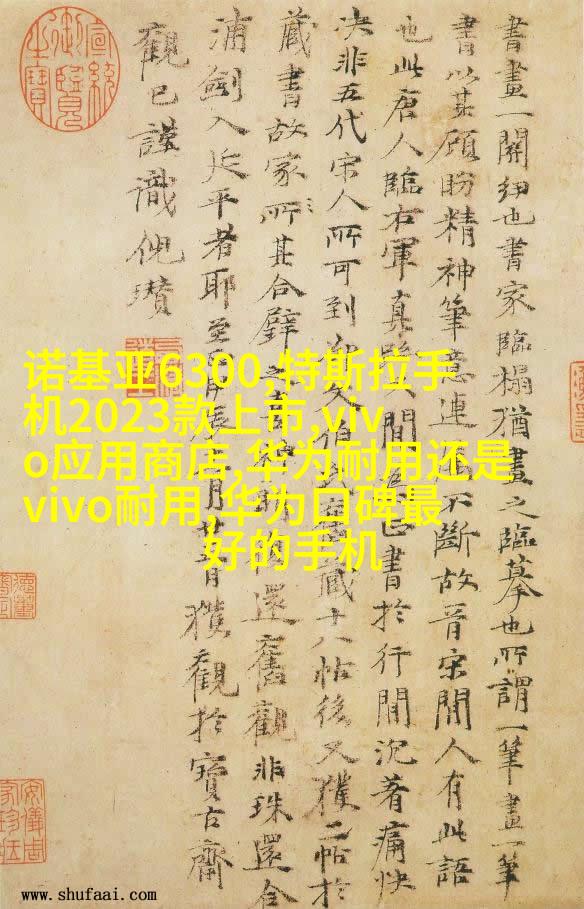 書畫一關紐也書家臨搨猶畫之臨摹也所謂一筆畫一筆
書以其顧盼精神筆意連不斷故晉宋間人有此語
也此唐人臨右軍真人間書於行間沉著痛快
決非五代宋人所可到又伯藏十八帖後又獲二帖於
蔵書故家所其合璧之還舊觀非珠還合
浦劍入延平者耶至辰月獲觀於寶古齋
觀已謹識倪瓚
宣統御覽之寶
诺基亚6300,特斯拉手
机2023款上市,viv
o应用商店,华为耐用还是
vivo耐用,华为口碑最
好的手机
www.shufaai.com